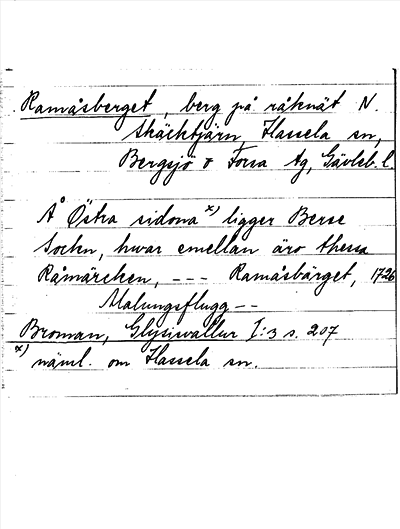 Ramåsberget, berg på råknät N.
Skäcktjärn, Hassela sn,
Bergsjö o Forsa tg, Gävleb. l.
Å Östra sidona x) ligger Berse
Sockn, hwar emellan äro thessa
Råmärcken, --- Ramåsbärget, 1726
Malungsflugg --
Broman, Glysiswallur I:3 s. 207
x) näml. om Hassela sn.